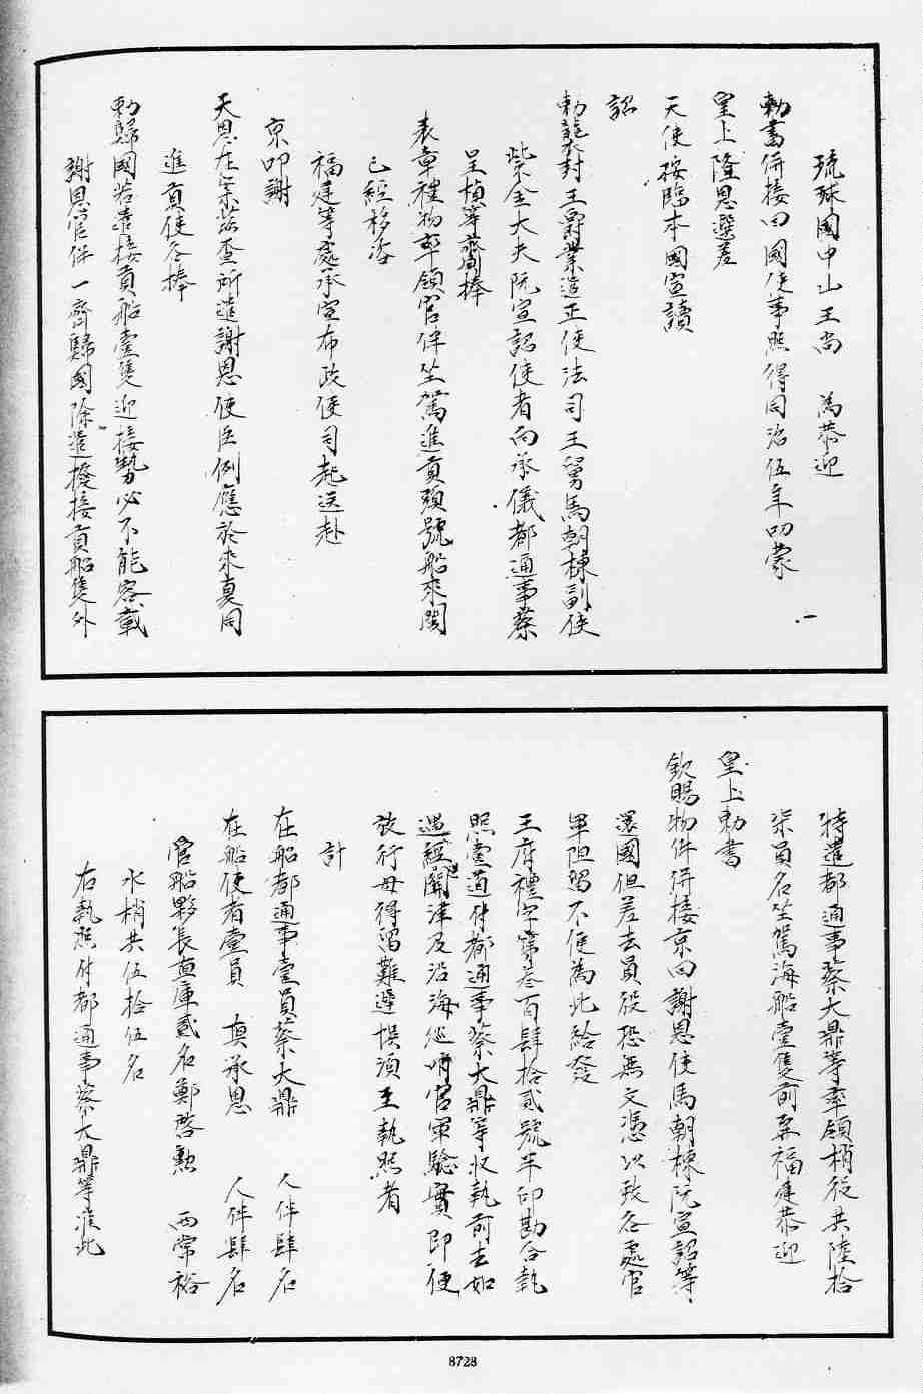 琉球國中山王尚　為恭迎
勅書併接回國使事照得同治伍年叩蒙
皇上隆恩選差
天使按臨本國宣讀
詔
勅襲封王爵業遣正使法司王舅馬朝棟副使
紫金大夫阮宣詔使者向承儀都通事蔡
呈楨等齎捧
表章禮物率領官伴坐駕進貢頭號船來閩
已經移咨
福建等處承宣布政使司起送赴
京叩謝
天恩在案茲查所遣謝恩使臣例應於來夏同
進貢使臣捧
勅歸國若遣接貢船壹隻迎接勢必不能容載
謝恩官伴一齊歸國除遣撥接貢船隻外
特遣都通事蔡大鼎等率領梢役共陸拾
柒員名坐駕海船壹隻前來福建恭迎
皇上勅書
欽賜物件併接京回謝恩使馬朝棟阮宣詔等
還國但差去員役恐無文憑以致各處官
軍阻留不便為此給發
王府禮字第叁百肆拾貳號半印勘合執
照壹道付都通事蔡大鼎等收執前去如
遇經關津及沿海巡哨官軍驗實即便
放行毋得留難遲悞須至執照者
計
在船都通事壹員蔡大鼎　人伴肆名
在船使者壹員　真承思　人伴肆名
管船夥長直庫貳名鄭啓勲　西常裕
水梢共伍拾伍名
右執照付都通事蔡大鼎等准此
8728